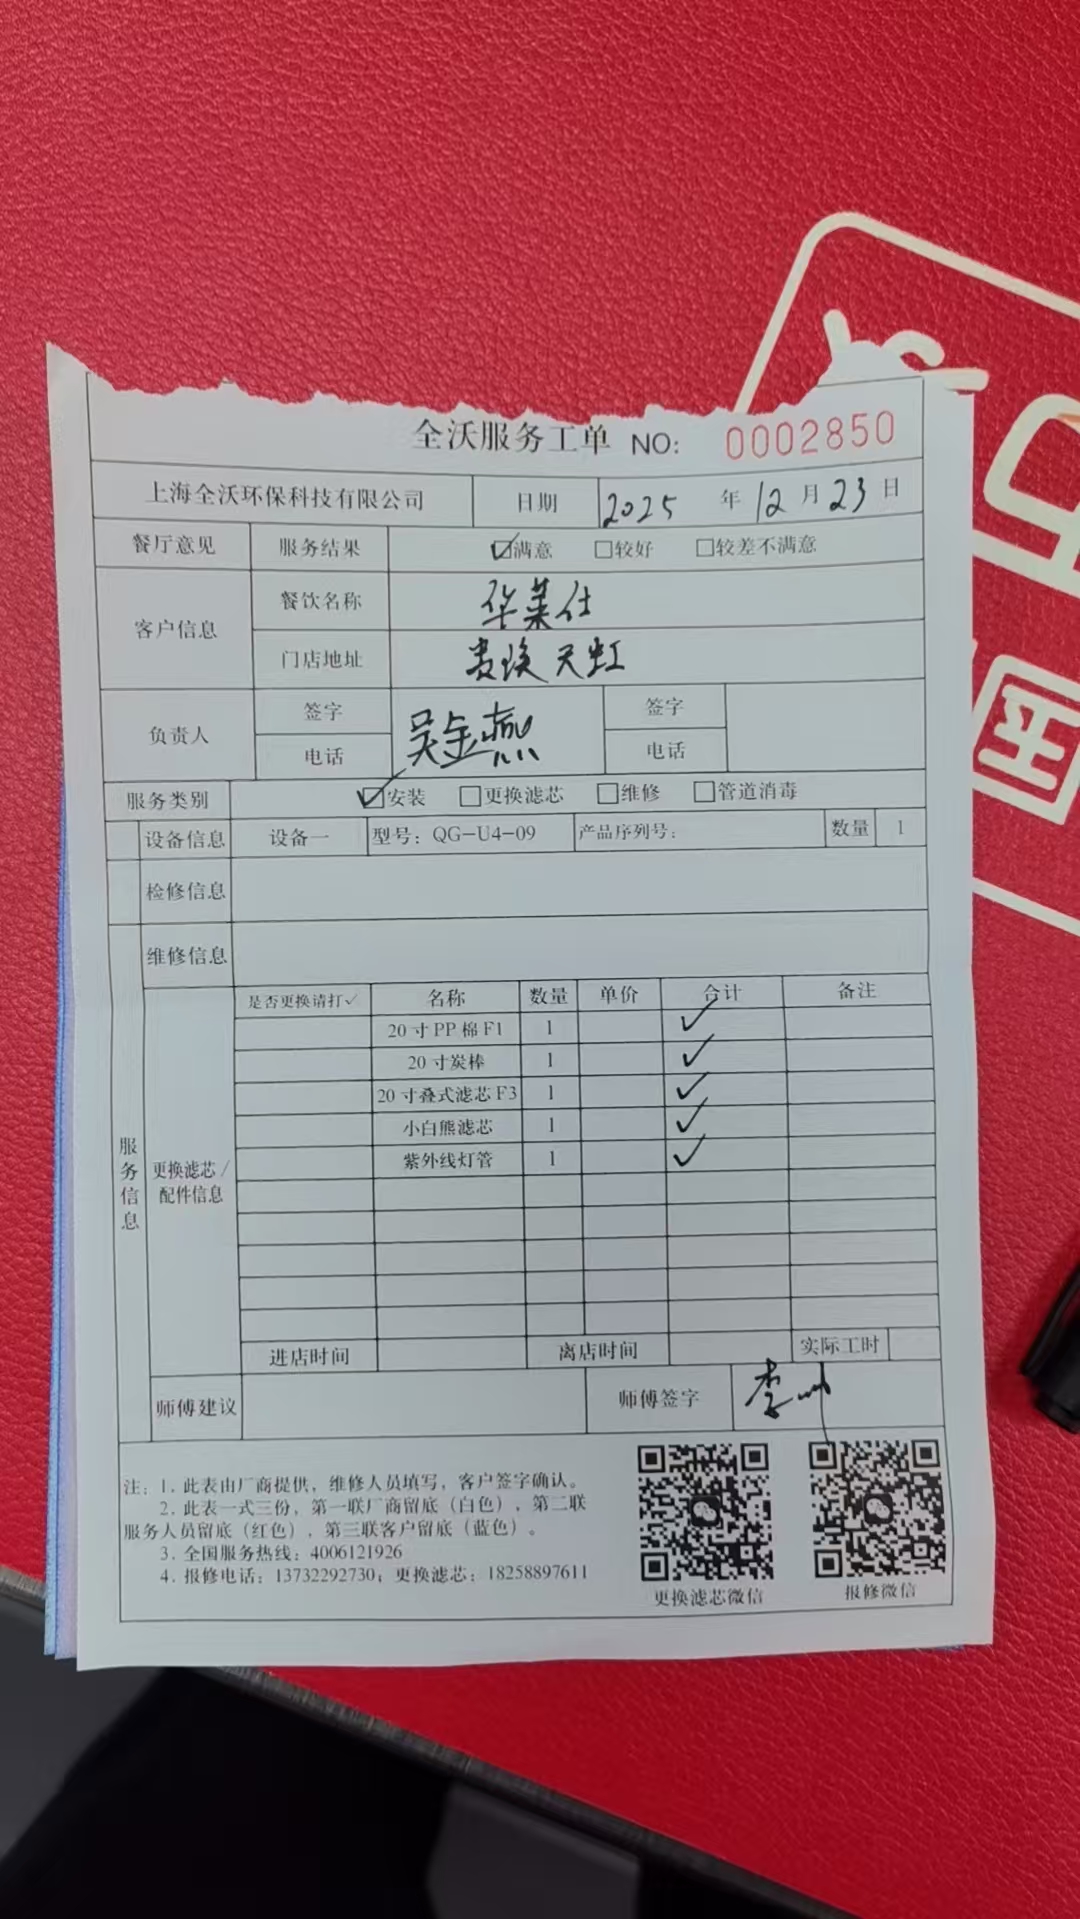 全沃服务工单 NO: 0002850
上海全沃环保科技有限公司 日期 2025 年 12 月 23 日
餐厅意见 服务结果 ☑满意 □较好 □较差不满意
客户信息 餐饮名称 华莱仕
门店地址 贵 天虹
负责人 签字 吴金燕 签字
电话 电话
服务类别 ☑安装 □更换滤芯 □维修 □管道消毒
设备信息 设备一 型号: QG-U4-09 产品序列号: 数量 1
检修信息
维修信息
服务信息
更换滤芯/配件信息
是否更换请打✓ 名称 数量 单价 合计 备注
20寸PP棉F1 1 ✓
20寸炭棒 1 ✓
20寸叠式滤芯F3 1 ✓
小白熊滤芯 1 ✓
紫外线灯管 1 ✓
进店时间 离店时间 实际工时
师傅建议 师傅签字 李
注: 1. 此表由厂商提供, 维修人员填写, 客户签字确认。
2. 此表一式三份, 第一联厂商留底 (白色), 第二联
服务人员留底 (红色), 第三联客户留底 (蓝色)。
3. 全国服务热线: 4006121926
4. 报修电话: 13732292730; 更换滤芯: 18258897611
更换滤芯微信 报修微信